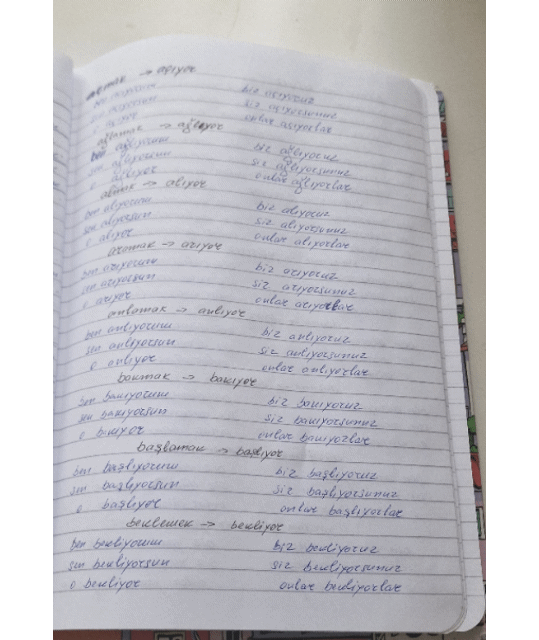 açmak → açıyor
ben açıyorum biz açıyoruz
sen açıyorsun siz açıyorsunuz
o açıyor onlar açıyorlar
ağlamak → ağlıyor
ben ağlıyorum biz ağlıyoruz
sen ağlıyorsun siz ağlıyorsunuz
o ağlıyor onlar ağlıyorlar
almak → alıyor
ben alıyorum biz alıyoruz
sen alıyorsun siz alıyorsunuz
o alıyor onlar alıyorlar
aramak → arıyor
ben arıyorum biz arıyoruz
sen arıyorsun siz arıyorsunuz
o arıyor onlar arıyorlar
anlamak → anlıyor
ben anlıyorum biz anlıyoruz
sen anlıyorsun siz anlıyorsunuz
o anlıyor onlar anlıyorlar
bakmak → bakıyor
ben bakıyorum biz bakıyoruz
sen bakıyorsun siz bakıyorsunuz
o bakıyor onlar bakıyorlar
başlamak → başlıyor
ben başlıyorum biz başlıyoruz
sen başlıyorsun siz başlıyorsunuz
o başlıyor onlar başlıyorlar
beklemek → bekliyor
ben bekliyorum biz bekliyoruz
sen bekliyorsun siz bekliyorsunuz
o bekliyor onlar bekliyorlar